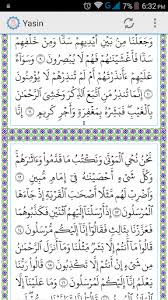 6:32 PM
Yasin
وَجَعَلْنَا مِنۢ بَيْنِ أَيْدِيهِمْ سَدًّا وَمِنْ خَلْفِهِمْ
سَدًّا فَأَغْشَيْنَٰهُمْ فَهُمْ لَا يُبْصِرُونَ ٩ وَسَوَآءٌ
عَلَيْهِمْ ءَأَنذَرْتَهُمْ أَمْ لَمْ تُنذِرْهُمْ لَا يُؤْمِنُونَ
١٠ إِنَّمَا تُنذِرُ مَنِ ٱتَّبَعَ ٱلذِّكْرَ وَخَشِىَ ٱلرَّحْمَٰنَ
بِٱلْغَيْبِ فَبَشِّرْهُ بِمَغْفِرَةٍ وَأَجْرٍ كَرِيمٍ ١١ إِنَّا
نَحْنُ نُحْىِ ٱلْمَوْتَىٰ وَنَكْتُبُ مَا قَدَّمُوا۟ وَءَاثَٰرَهُمْ وَكُلَّ
شَىْءٍ أَحْصَيْنَٰهُ فِىٓ إِمَامٍ مُّبِينٍ ١٢
وَٱضْرِبْ لَهُم مَّثَلًا أَصْحَٰبَ ٱلْقَرْيَةِ إِذْ جَآءَهَا ٱلْمُرْسَلُونَ ١٣
إِذْ أَرْسَلْنَآ إِلَيْهِمُ ٱثْنَيْنِ فَكَذَّبُوهُمَا
فَعَزَّزْنَا بِثَالِثٍ فَقَالُوٓا۟ إِنَّآ إِلَيْكُم مُّرْسَلُونَ ١٤
قَالُوا۟ مَآ أَنتُمْ إِلَّا بَشَرٌ مِّثْلُنَا وَمَآ أَنزَلَ ٱلرَّحْمَٰنُ مِن
شَىْءٍ إِنْ أَنتُمْ إِلَّا تَكْذِبُونَ ١٥ قَالُوا۟ رَبُّنَا